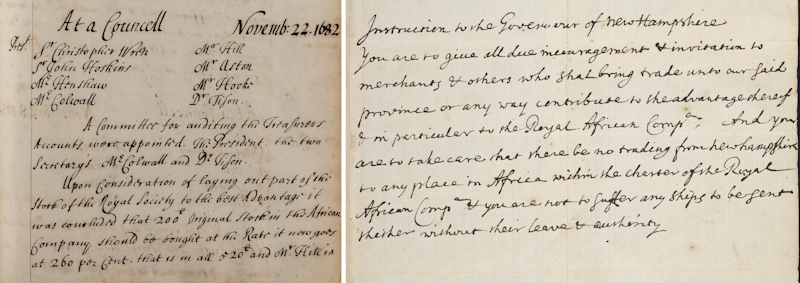 At a Councell Novemb: 22. 1682
Prest.
Sr. Christopher Wren Mr. Hill
Sr. John Hoskins Mr. Aston
Mr. Henshaw Mr. Hooke
Mr. Colwall Dr. Tison.
A Committee for auditing the Treasurers
Accounts were appointed. The President, the two
Secretarys Mr. Colwall and Dr. Tison.
Upon Consideration of laying out part of the
Stock of the Royal Society to the best Advantage it
was concluded that 200£ Original Stock in the African
Company should be bought at the Rate it now goes
at 260 per Cent. that is in all 520£ and Mr. Hill is
Instruction to the Governour of New Hampshire
You are to give all due incouragement & invitation to
merchants & others who shal bring trade unto our said
province or any way contribute to the advantage thereof
& in particular to the Royal African Compa. And you
are to take care that there be no trading from new hampshire
to any place in Africa within the charter of the Royal
African Compa & you are not to suffer any ships to be sent
thither without their leave & authority